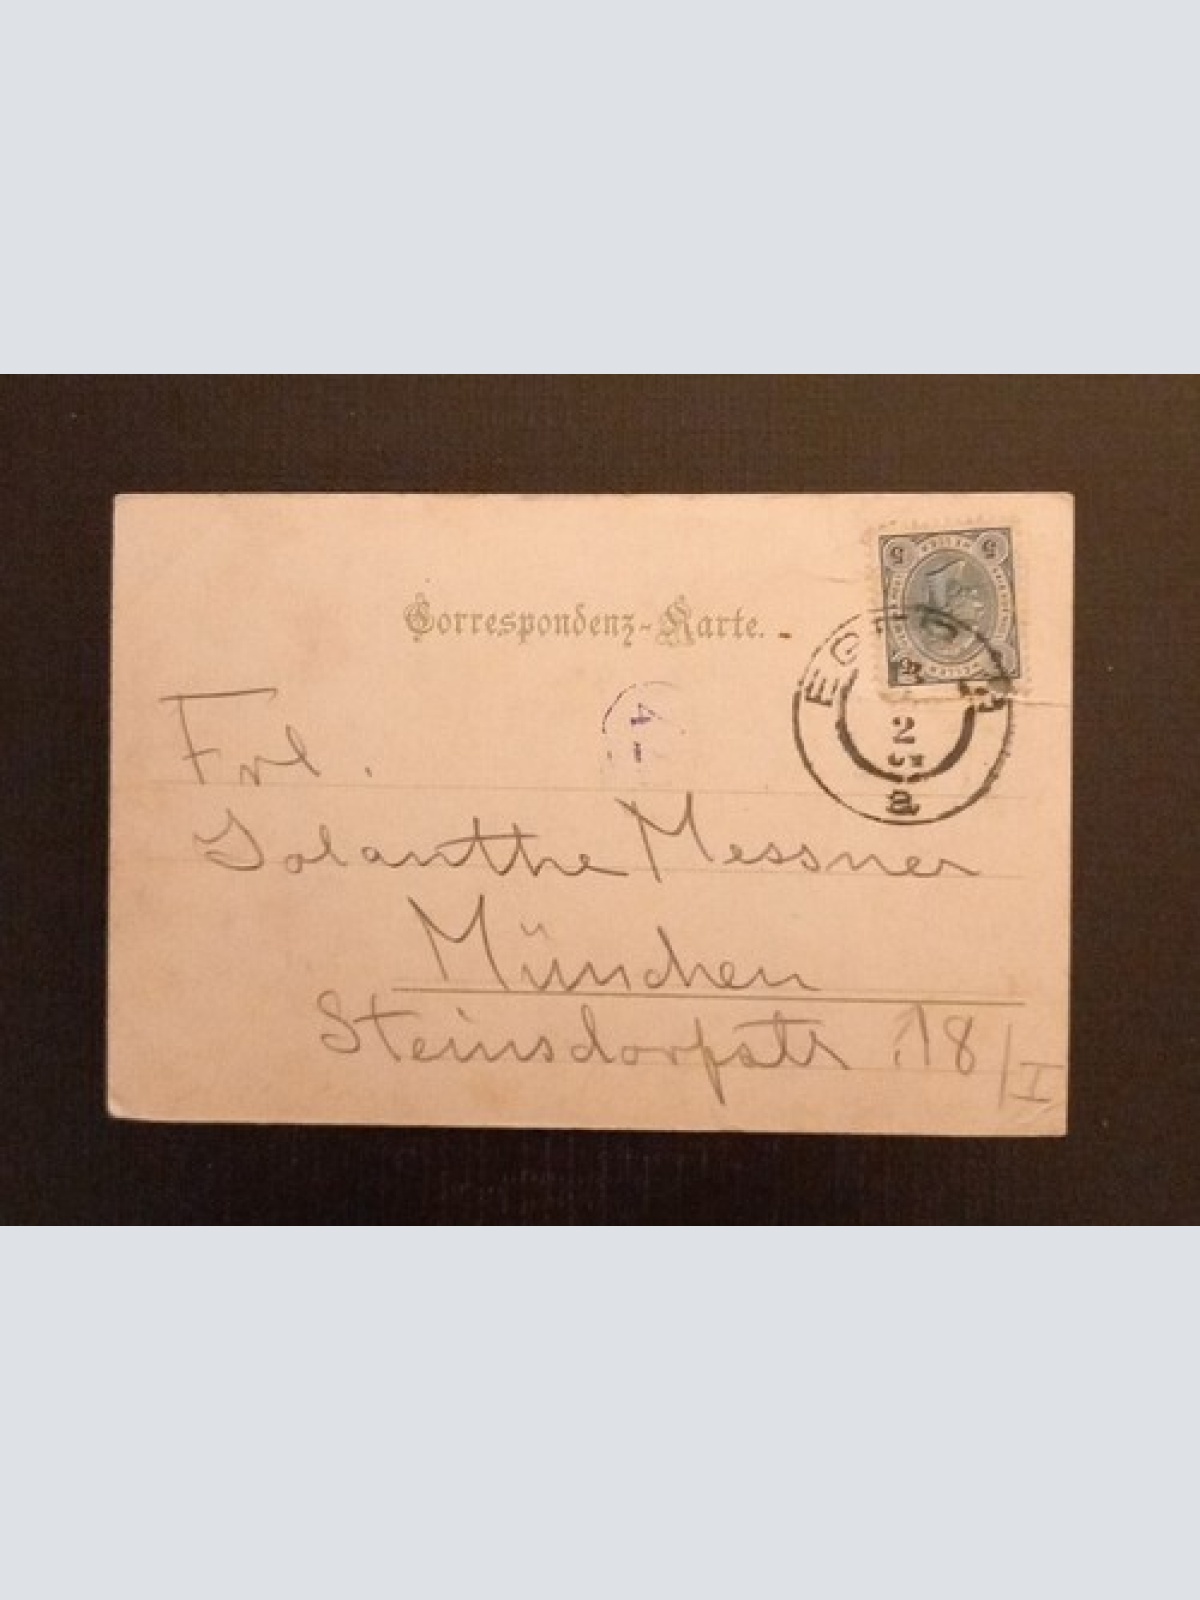 Correspondenz-Karte.
5 HELLER 5
HELLER
2
a
4
Frl.
Jolanthe Messner
München
Steinsdorfstr. 18/I